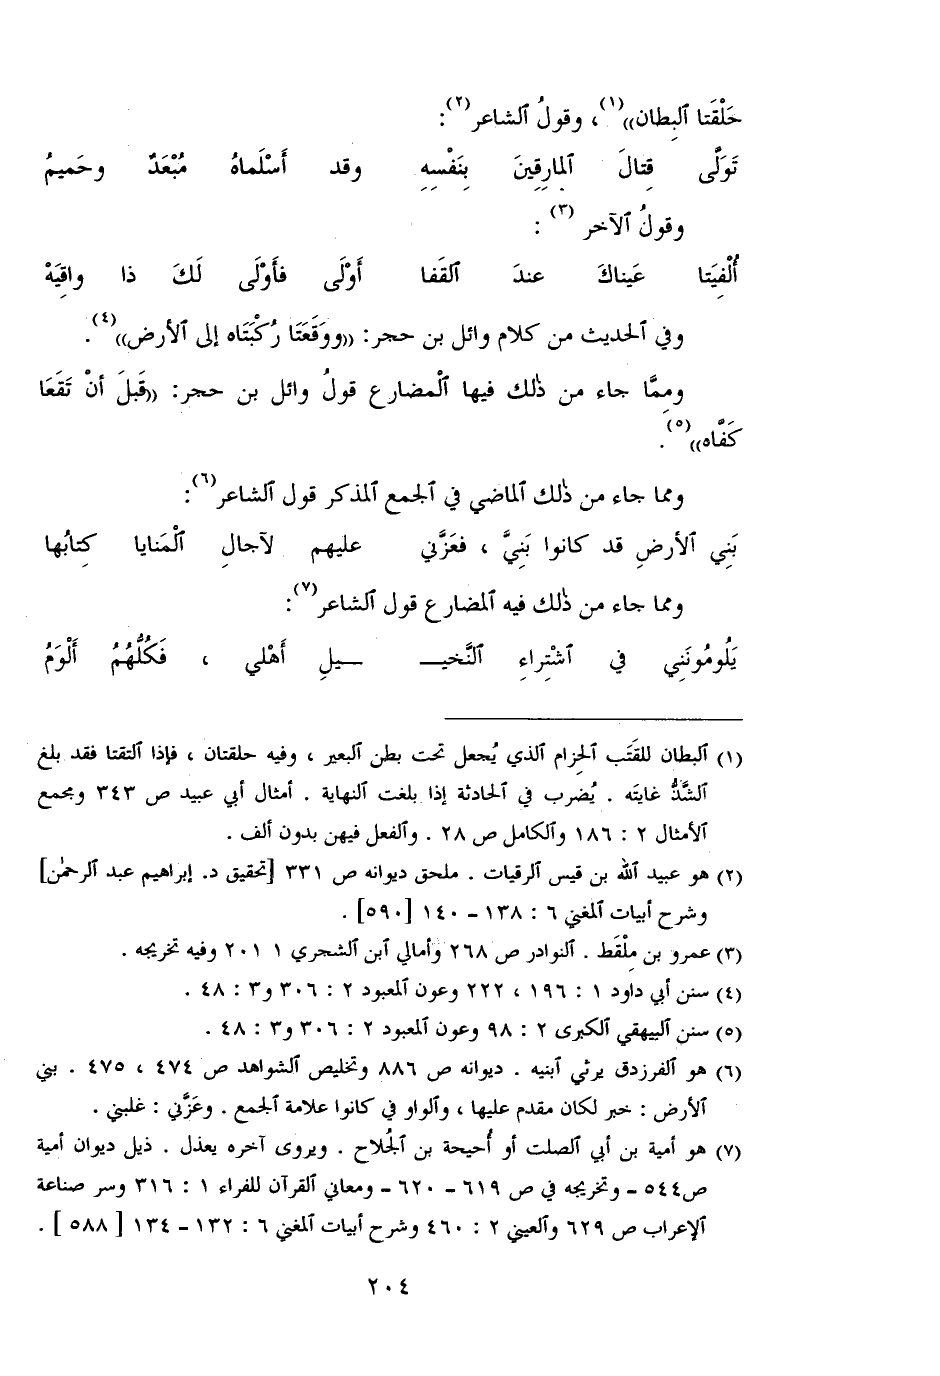 حَلْقَتا ٱلبِطان»(١)، وقولُ ٱلشاعر(٢):
تَوَلَّى قِتالَ ٱلمارِقِينَ بِنَفْسِهِ وقد أَسْلَماهُ مُبْعَدٌ وحَميمُ
وقولُ ٱلآخر(٣) :
أُلْفِيَتا عَيناكَ عندَ ٱلقَفا أَوْلَى فأَوْلَى لَكَ ذا واقِيَهْ
وفي ٱلحديث من كلام وائل بن حجر: «ووَقَعَتَا رُكْبَتَاه إلى ٱلأرض»(٤).
ومِمَّا جاء من ذٰلك فيها ٱلْمضارع قولُ وائل بن حجر: «قَبلَ أنْ تَقَعَا
كَفَّاه»(٥).
ومما جاء من ذٰلك ٱلماضي في ٱلجمع ٱلمذكر قول ٱلشاعر(٦):
بَنِي ٱلأرضِ قد كانوا بَنِيَّ ، فعَزَّني عليهم لآجالِ ٱلْمَنايا كِتابُها
ومما جاء من ذٰلك فيه ٱلمضارع قول ٱلشاعر(٧):
يَلُومُونَنِي في ٱشْتِراءِ ٱلنَّخيـ ـيلِ أَهْلي ، فَكُلُّهُمُ أَلْوَمُ
(١) ٱلبطان للقَتَب ٱلحِزام ٱلذي يُجعل تحت بطن ٱلبعير ، وفيه حلقتان ، فإذا ٱلتقتا فقد بلغ
ٱلشَّدُّ غايتَه . يُضرب في ٱلحادثة إذا بلغت ٱلنهاية . أمثال أبي عبيد ص ٣٤٣ ومجمع
ٱلأمثال ٢ : ١٨٦ وٱلكامل ص ٢٨ . وٱلفعل فيهن بدون ألف .
(٢) هو عبيد ٱلله بن قيس ٱلرقيات . ملحق ديوانه ص ٣٣١ [تحقيق د. إبراهيم عبد ٱلرحمٰن]
وشرح أبيات ٱلمغني ٦ : ١٣٨ – ١٤٠ [٥٩٠] .
(٣) عمرو بن مِلْقَط . ٱلنوادر ص ٢٦٨ وأمالي ٱبن ٱلشجري ١ ٢٠١ وفيه تخريجه .
(٤) سنن أبي داود ١ : ١٩٦ ، ٢٢٢ وعون ٱلمعبود ٢ : ٣٠٦ و٣ : ٤٨ .
(٥) سنن ٱلبيهقي ٱلكبرى ٢ : ٩٨ وعون ٱلمعبود ٢ : ٣٠٦ و٣ : ٤٨ .
(٦) هو ٱلفرزدق يرثي ٱبنيه . ديوانه ص ٨٨٦ وتخليص ٱلشواهد ص ٤٧٤ ، ٤٧٥ . بني
ٱلأرض : خبر لكان مقدم عليها ، وٱلواو في كانوا علامة ٱلجمع . وعَزَّني : غلبني .
(٧) هو أمية بن أبي ٱلصلت أو أُحيحة بن ٱلجُلاح . ويروى آخره يعذل . ذيل ديوان أمية
ص٥٤٤ – وتخريجه في ص ٦١٩ – ٦٢٠ – ومعاني ٱلقرآن للفراء ١ : ٣١٦ وسر صناعة
ٱلإعراب ص ٦٢٩ وٱلعيني ٢ : ٤٦٠ وشرح أبيات ٱلمغني ٦ : ١٣٢ – ١٣٤ [ ٥٨٨ ] .
٢٠٤